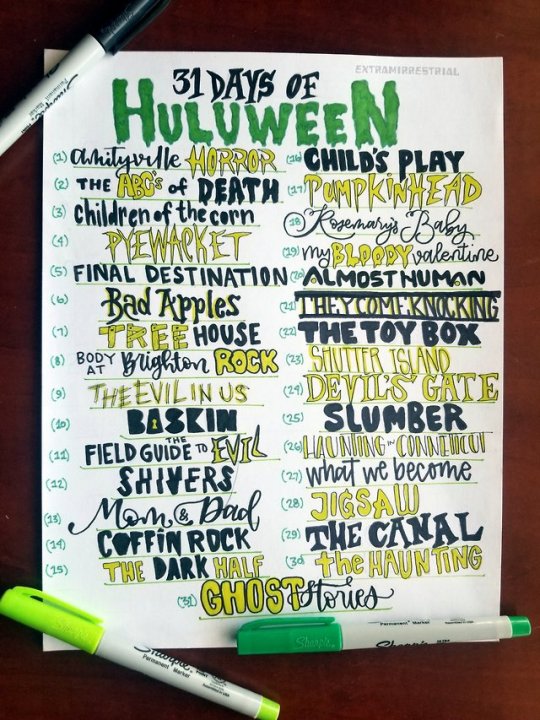 EXTRAMIRRESTRIAL
31 DAYS OF
HULUWEEN
(1) Amityville HORROR
(2) THE ABC's of DEATH
(3) Children of the corn
(4) PYEWACKET
(5) FINAL DESTINATION
(6) Bad Apples
(7) TREE HOUSE
(8) BODY AT Brighton ROCK
(9) THE EVIL IN US
(10) BASKIN
(11) FIELD GUIDE THE TO EVIL
(12) SHIVERS
(13) Mom & Dad
(14) COFFIN ROCK
(15) THE DARK HALF
(16) CHILD'S PLAY
(17) PUMPKINHEAD
(18) Rosemary's Baby
(19) my BLOODY valentine
(20) ALMOST HUMAN
(21) THEY COME KNOCKING
(22) THE TOY BOX
(23) SHUTTER ISLAND
(24) DEVIL'S GATE
(25) SLUMBER
(26) HAUNTING IN CONNETICUT
(27) what we become
(28) JIGSAW
(29) THE CANAL
(30) the HAUNTING
(31) GHOST Stories
Sharpie
Permanent Marker
Sharpie
Permanent Marker
Sharpie
Permanent Marker
Sharpie